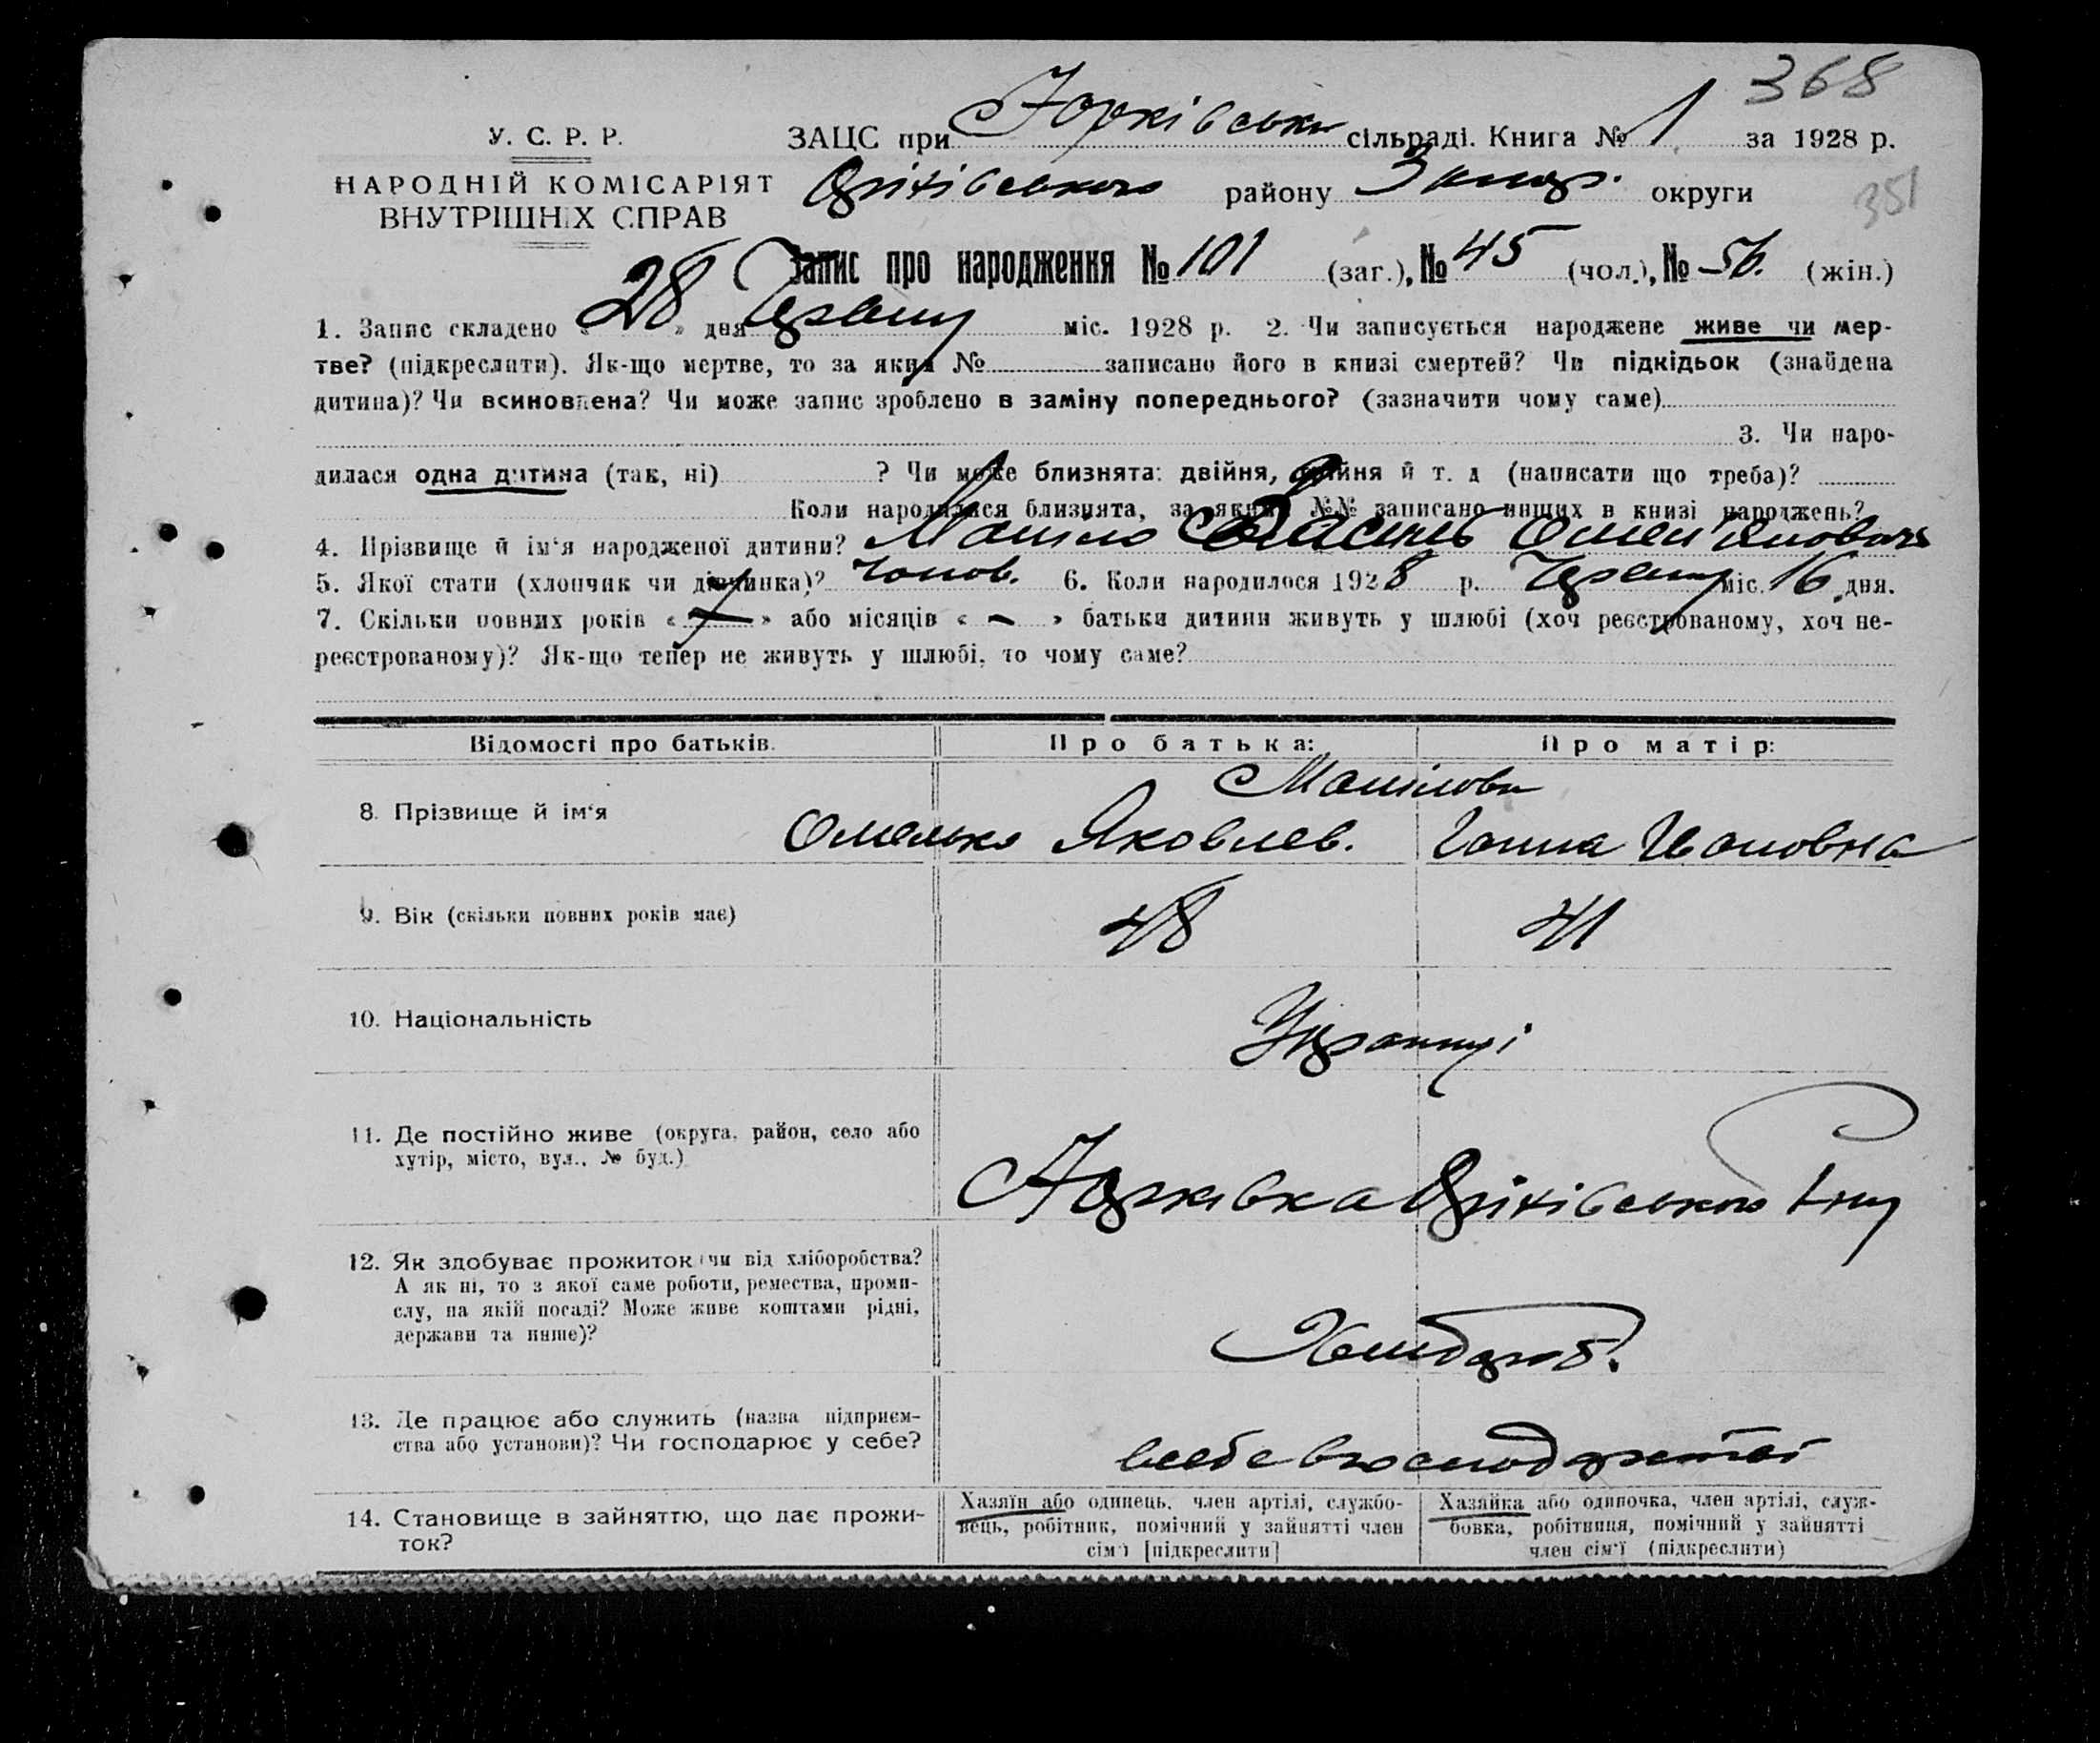 368
У. С. Р. Р. ЗАЦС при Юрківськ сільраді. Книга № 1 за 1928 р.
НАРОДНІЙ КОМІСАРІЯТ Оріхівського району Запор. округи 351
ВНУТРІШНІХ СПРАВ
Запис про народження № 101 (заг.), № 45 (чол.), № 56. (жін.)
1. Запис складено « 28 » дня Червня міс. 1928 р. 2. Чи записується народжене живе чи мер-
тве? (підкреслити). Як-що мертве, то за яким № записано його в книзі смертей? Чи підкідьок (знайдена
дитина)? Чи всиновлена? Чи може запис зроблено в заміну попереднього? (зазначити чому саме)
3. Чи наро-
дилася одна дитина (так, ні) ? Чи може близнята: двійня, трійня й т. д (написати що треба)?
Коли народилися близнята, за яким №№ записано инших в книзі народжень?
4. Прізвище й ім'я народженої дитини? Василь Омел'янович
5. Якої стати (хлопчик чи дівчинка)? Чолов. 6. Коли народилося 1928 р. Червня міс. 16 дня.
7. Скільки повних років « — » або місяців « — » батьки дитини живуть у шлюбі (хоч реєстрованому, хоч не-
реєстрованому)? Як-що тепер не живуть у шлюбі, то чому саме?
Відомості про батьків. Про батька: Про матір:
8. Прізвище й ім'я Омелько Яковлев. Ганна Ивановна
9. Вік (скільки повних років має) 48 41
10. Національність Українці
11. Де постійно живе (округа, район, село або
хутір, місто, вул., № буд.)
Юрківка Оріхівського Р-ну
12. Як здобуває прожиток (чи від хліборобства?
А як ні, то з якої саме роботи, ремества, проми-
слу, на якій посаді? Може живе коштами рідні,
держави та инше)?
Хлібороб.
13. Де працює або служить (назва підприєм-
ства або установи)? Чи господарює у себе?
всебе вгосподарстві
14. Становище в зайняттю, що дає прожи-
ток?
Хазяїн або одинець, член артілі, службо-
вець, робітник, помічний у зайнятті член
сім'ї [підкреслити]
Хазяйка або одиночка, член артілі, служ-
бовка, робітниця, помічний у зайнятті
член сім'ї (підкреслити)